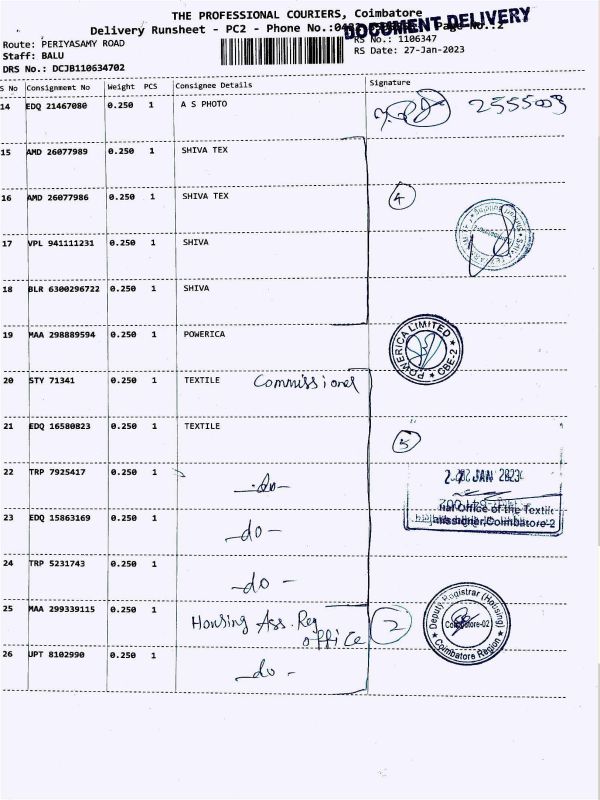 THE PROFESSIONAL COURIERS, Coimbatore
Delivery Runsheet - PC2 - Phone No.:
DOCUMENT DELIVERY
Route: PERIYASAMY ROAD
RS No.: 1106347
Staff: BALU
RS Date: 27-Jan-2023
DRS No.: DCJB110634702
S No Consignment No Weight PCS Consignee Details Signature
14 EDQ 21467080 0.250 1 A S PHOTO
15 AMD 26077989 0.250 1 SHIVA TEX
16 AMD 26077986 0.250 1 SHIVA TEX 4
17 VPL 941111231 0.250 1 SHIVA
18 BLR 6300296722 0.250 1 SHIVA
19 MAA 298889594 0.250 1 POWERICA
POWERICA LIMITED ★ CBE-2 ★
20 STY 71341 0.250 1 TEXTILE Commissioner
21 EDQ 16580823 0.250 1 TEXTILE 5
22 TRP 7925417 0.250 1 -do-
JAN 2023
23 EDQ 15863169 0.250 1 -do-
Office of the Textile
Coimbatore-2
24 TRP 5231743 0.250 1 -do-
25 MAA 299339115 0.250 1 Housing Ass. Reg
office 2
Deputy Registrar (Housing)
Coimbatore-02
★ Coimbatore Region ★
26 UPT 8102990 0.250 1 -do-